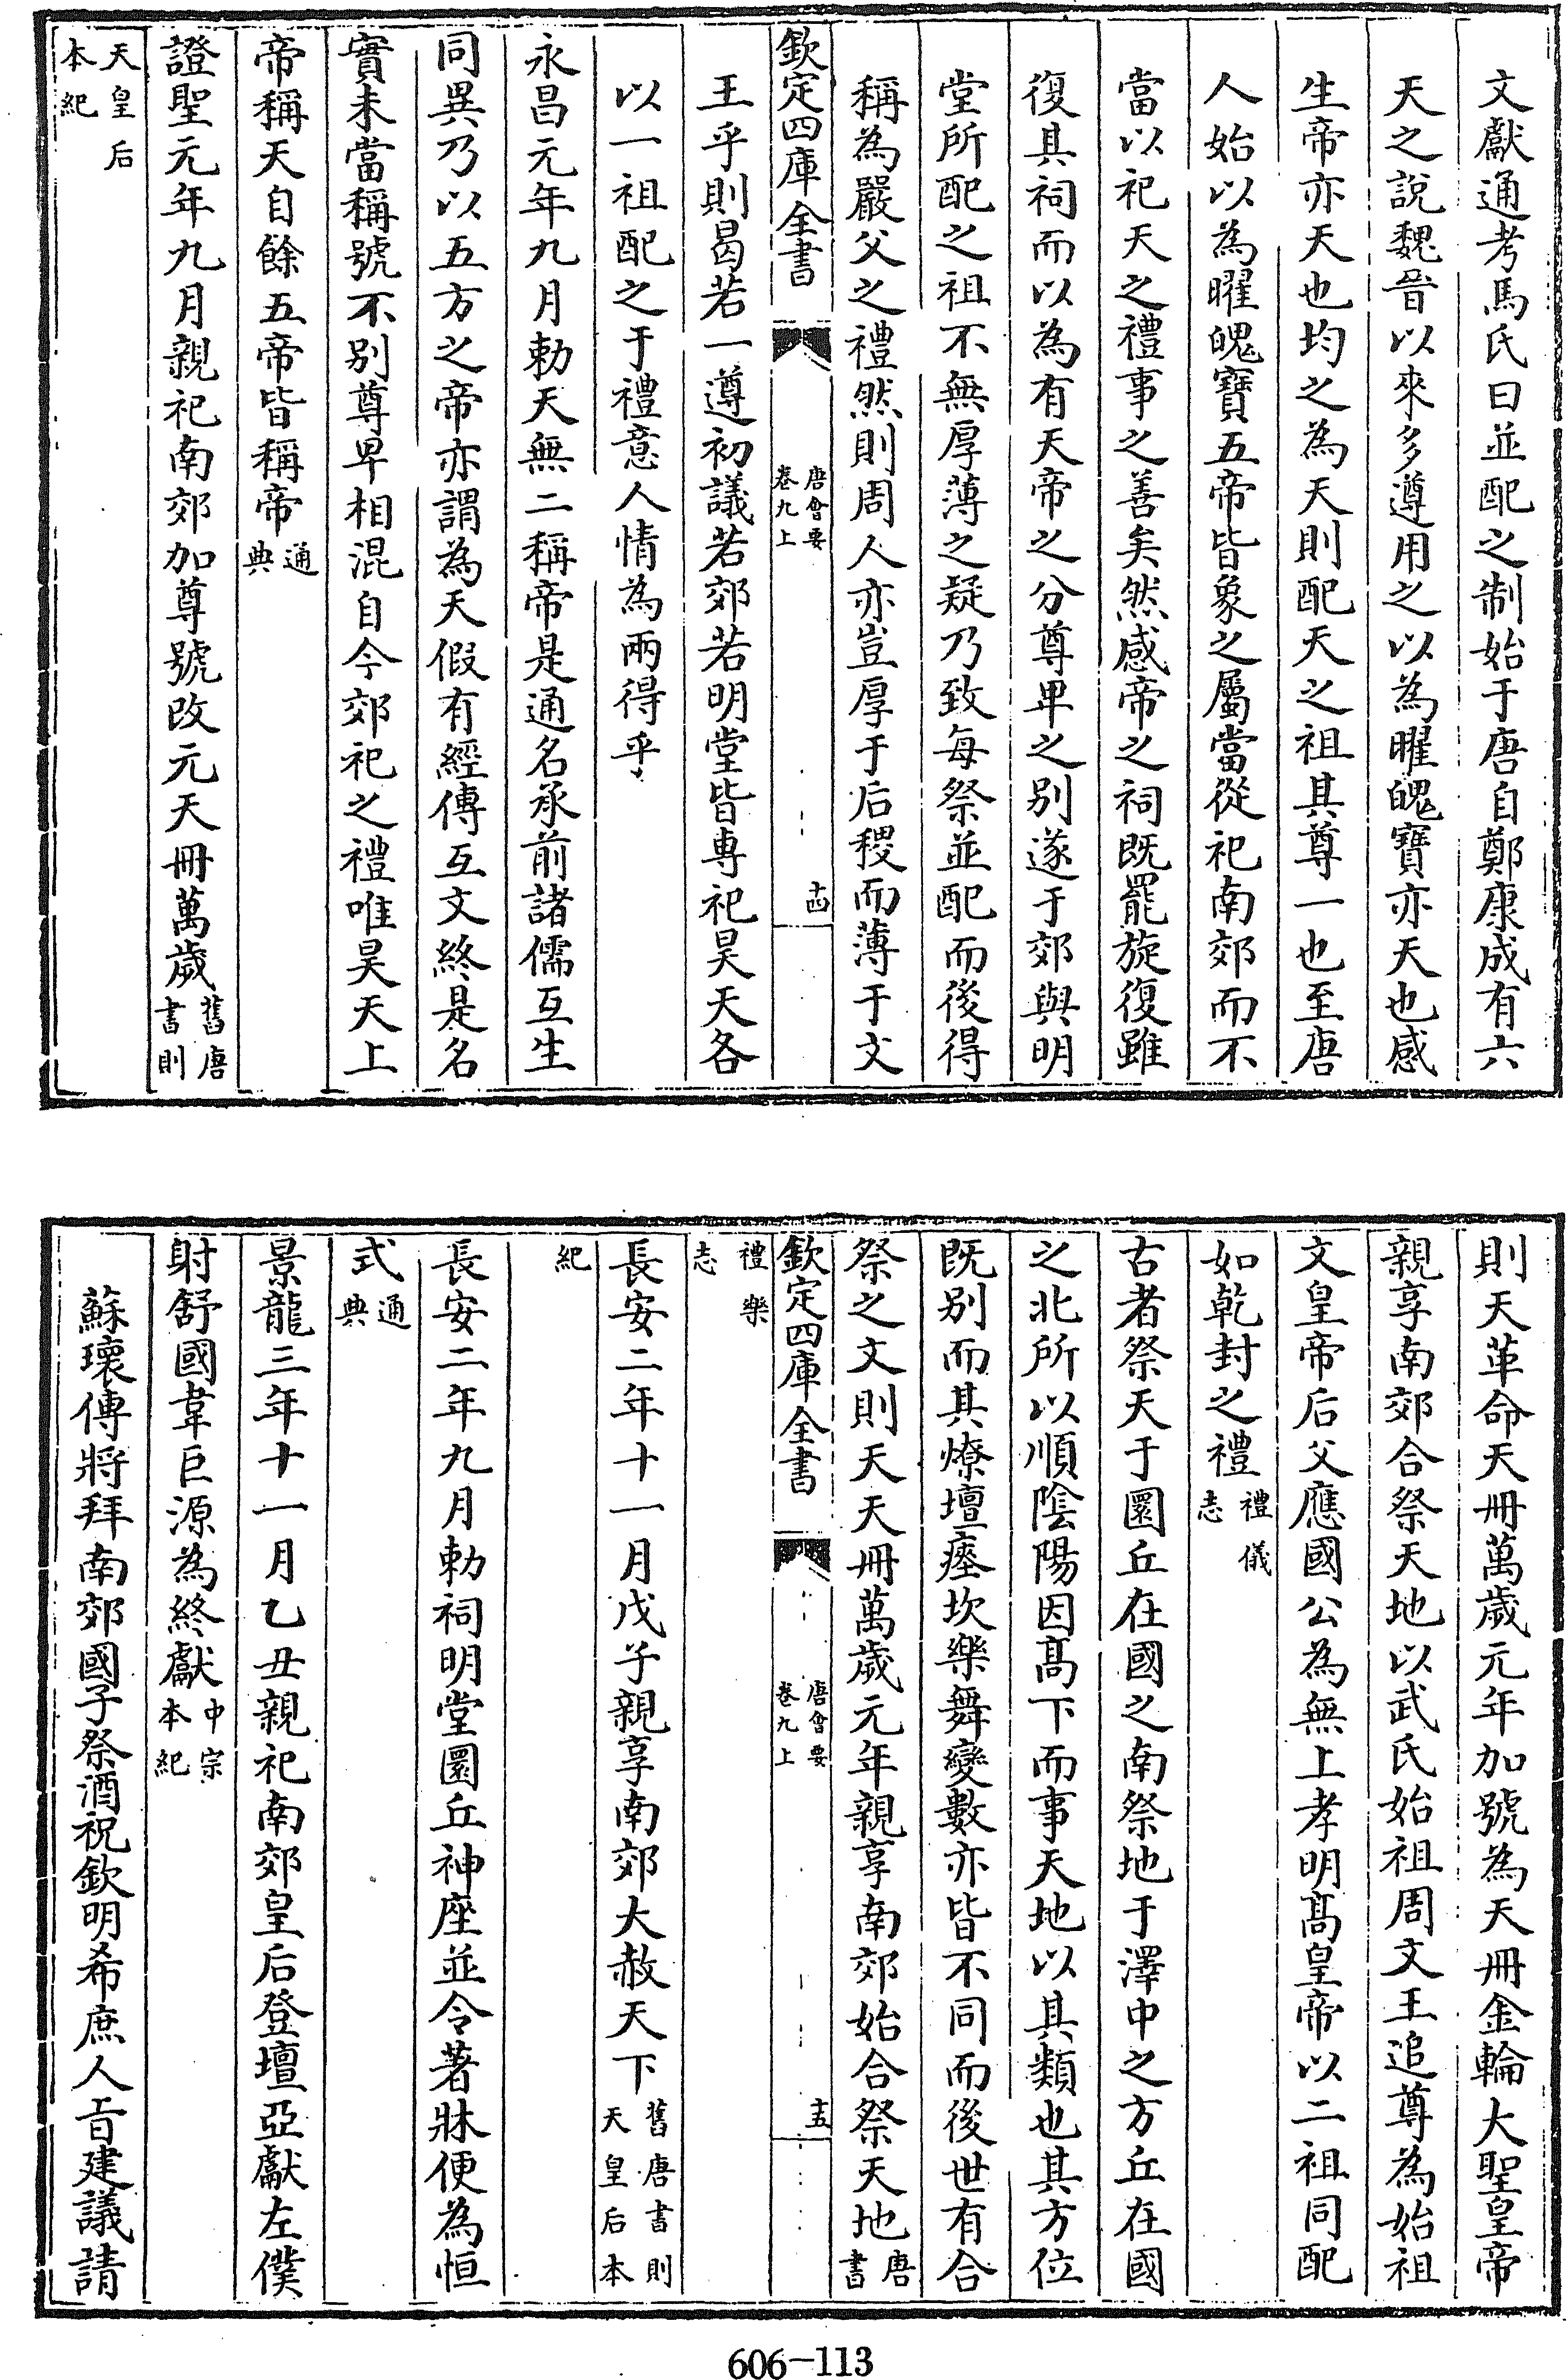 文獻通考馬氏曰並配之制始于唐自鄭康成有六
天之說魏晉以來多遵用之以為曜魄寶亦天也感
生帝亦天也均之為天則配天之祖其尊一也至唐
人始以為曜魄寶五帝皆象之屬當從祀南郊而不
當以祀天之禮事之善矣然感帝之祠既罷旋復雖
復其祠而以為有天帝之分尊卑之别遂于郊與明
堂所配之祖不無厚薄之疑乃致每祭並配而後得
稱為嚴父之禮然則周人亦豈厚于后稷而薄于文
欽定四庫全書 唐會要 卷九上 十四
王乎則曷若一遵初議若郊若明堂皆專祀昊天各
以一祖配之于禮意人情為兩得乎
永昌元年九月勅天無二稱帝是通名承前諸儒互生
同異乃以五方之帝亦謂為天假有經傳互文終是名
實未當稱號不别尊卑相混自今郊祀之禮唯昊天上
帝稱天自餘五帝皆稱帝通典
證聖元年九月親祀南郊加尊號改元天冊萬歲舊唐書則
天皇后本紀
則天革命天冊萬歲元年加號為天冊金輪大聖皇帝
親享南郊合祭天地以武氏始祖周文王追尊為始祖
文皇帝后父應國公為無上孝明髙皇帝以二祖同配
如乾封之禮禮儀志
古者祭天于圜丘在國之南祭地于澤中之方丘在國
之北所以順陰陽因髙下而事天地以其類也其方位
既别而其燎壇瘞坎樂舞變數亦皆不同而後世有合
祭之文則天天冊萬歲元年親享南郊始合祭天地唐書
欽定四庫全書 唐會要 卷九上 十五
禮樂志
長安二年十一月戊子親享南郊大赦天下舊唐書則天皇后本
紀
長安二年九月勅祠明堂圜丘神座並令著牀便為恒
式通典
景龍三年十一月乙丑親祀南郊皇后登壇亞獻左僕
射舒國韋巨源為終獻中宗本紀
蘇瓌傳將拜南郊國子祭酒祝欽明希庶人旨建議請
606-113